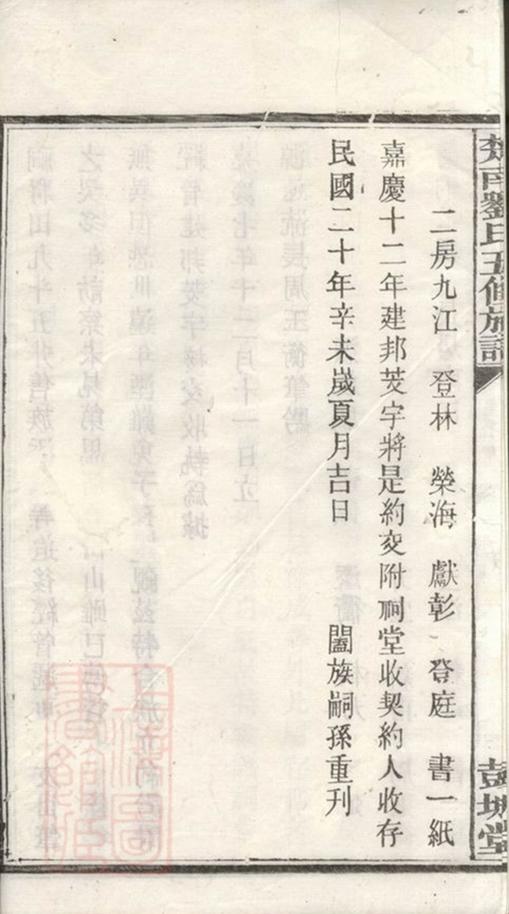 楚南劉氏五修族譜
彭城堂
二房九江 登林 榮海 獻彰 登庭 書一紙
嘉慶十二年建邦茭宇將是約交附祠堂收契約人收存
民國二十年辛未歲夏月吉日 闔族嗣孫重刊